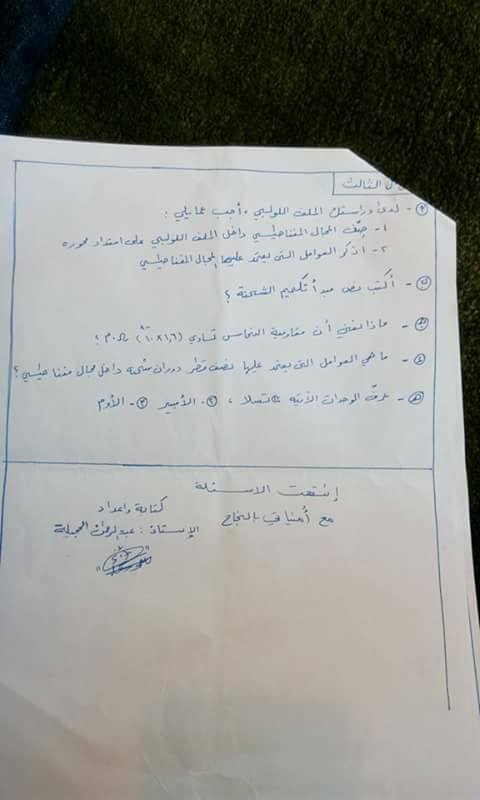 ال الثالث
أ- لدى دراستك الملف اللولبي، أجب عمايلي:
١- صِف المجال المغناطيسي داخل الملف اللولبي على امتداد محوره
٢- أذكر العوامل التي يعتمد عليها المجال المغناطيسي
ب- أكتب نص مبدأ تكميم الشحنة ؟
ج- ماذا نعني أن مقاومية النحاس تساوي (١,٦×١٠⁻٨) Ω.م ؟
د- ما هي العوامل التي يعتمد عليها نصف قطر دوران شحنه داخل مجال مغناطيسي؟
هـ- عرّف الوحدات الأتيه ١- تسلا، ٢- الأمبير ٣- الأوم
إنتهت الاسئلة
مع أمنياتي بالنجاح
كتابة واعداد
الإستاذ: عبدالرحمن